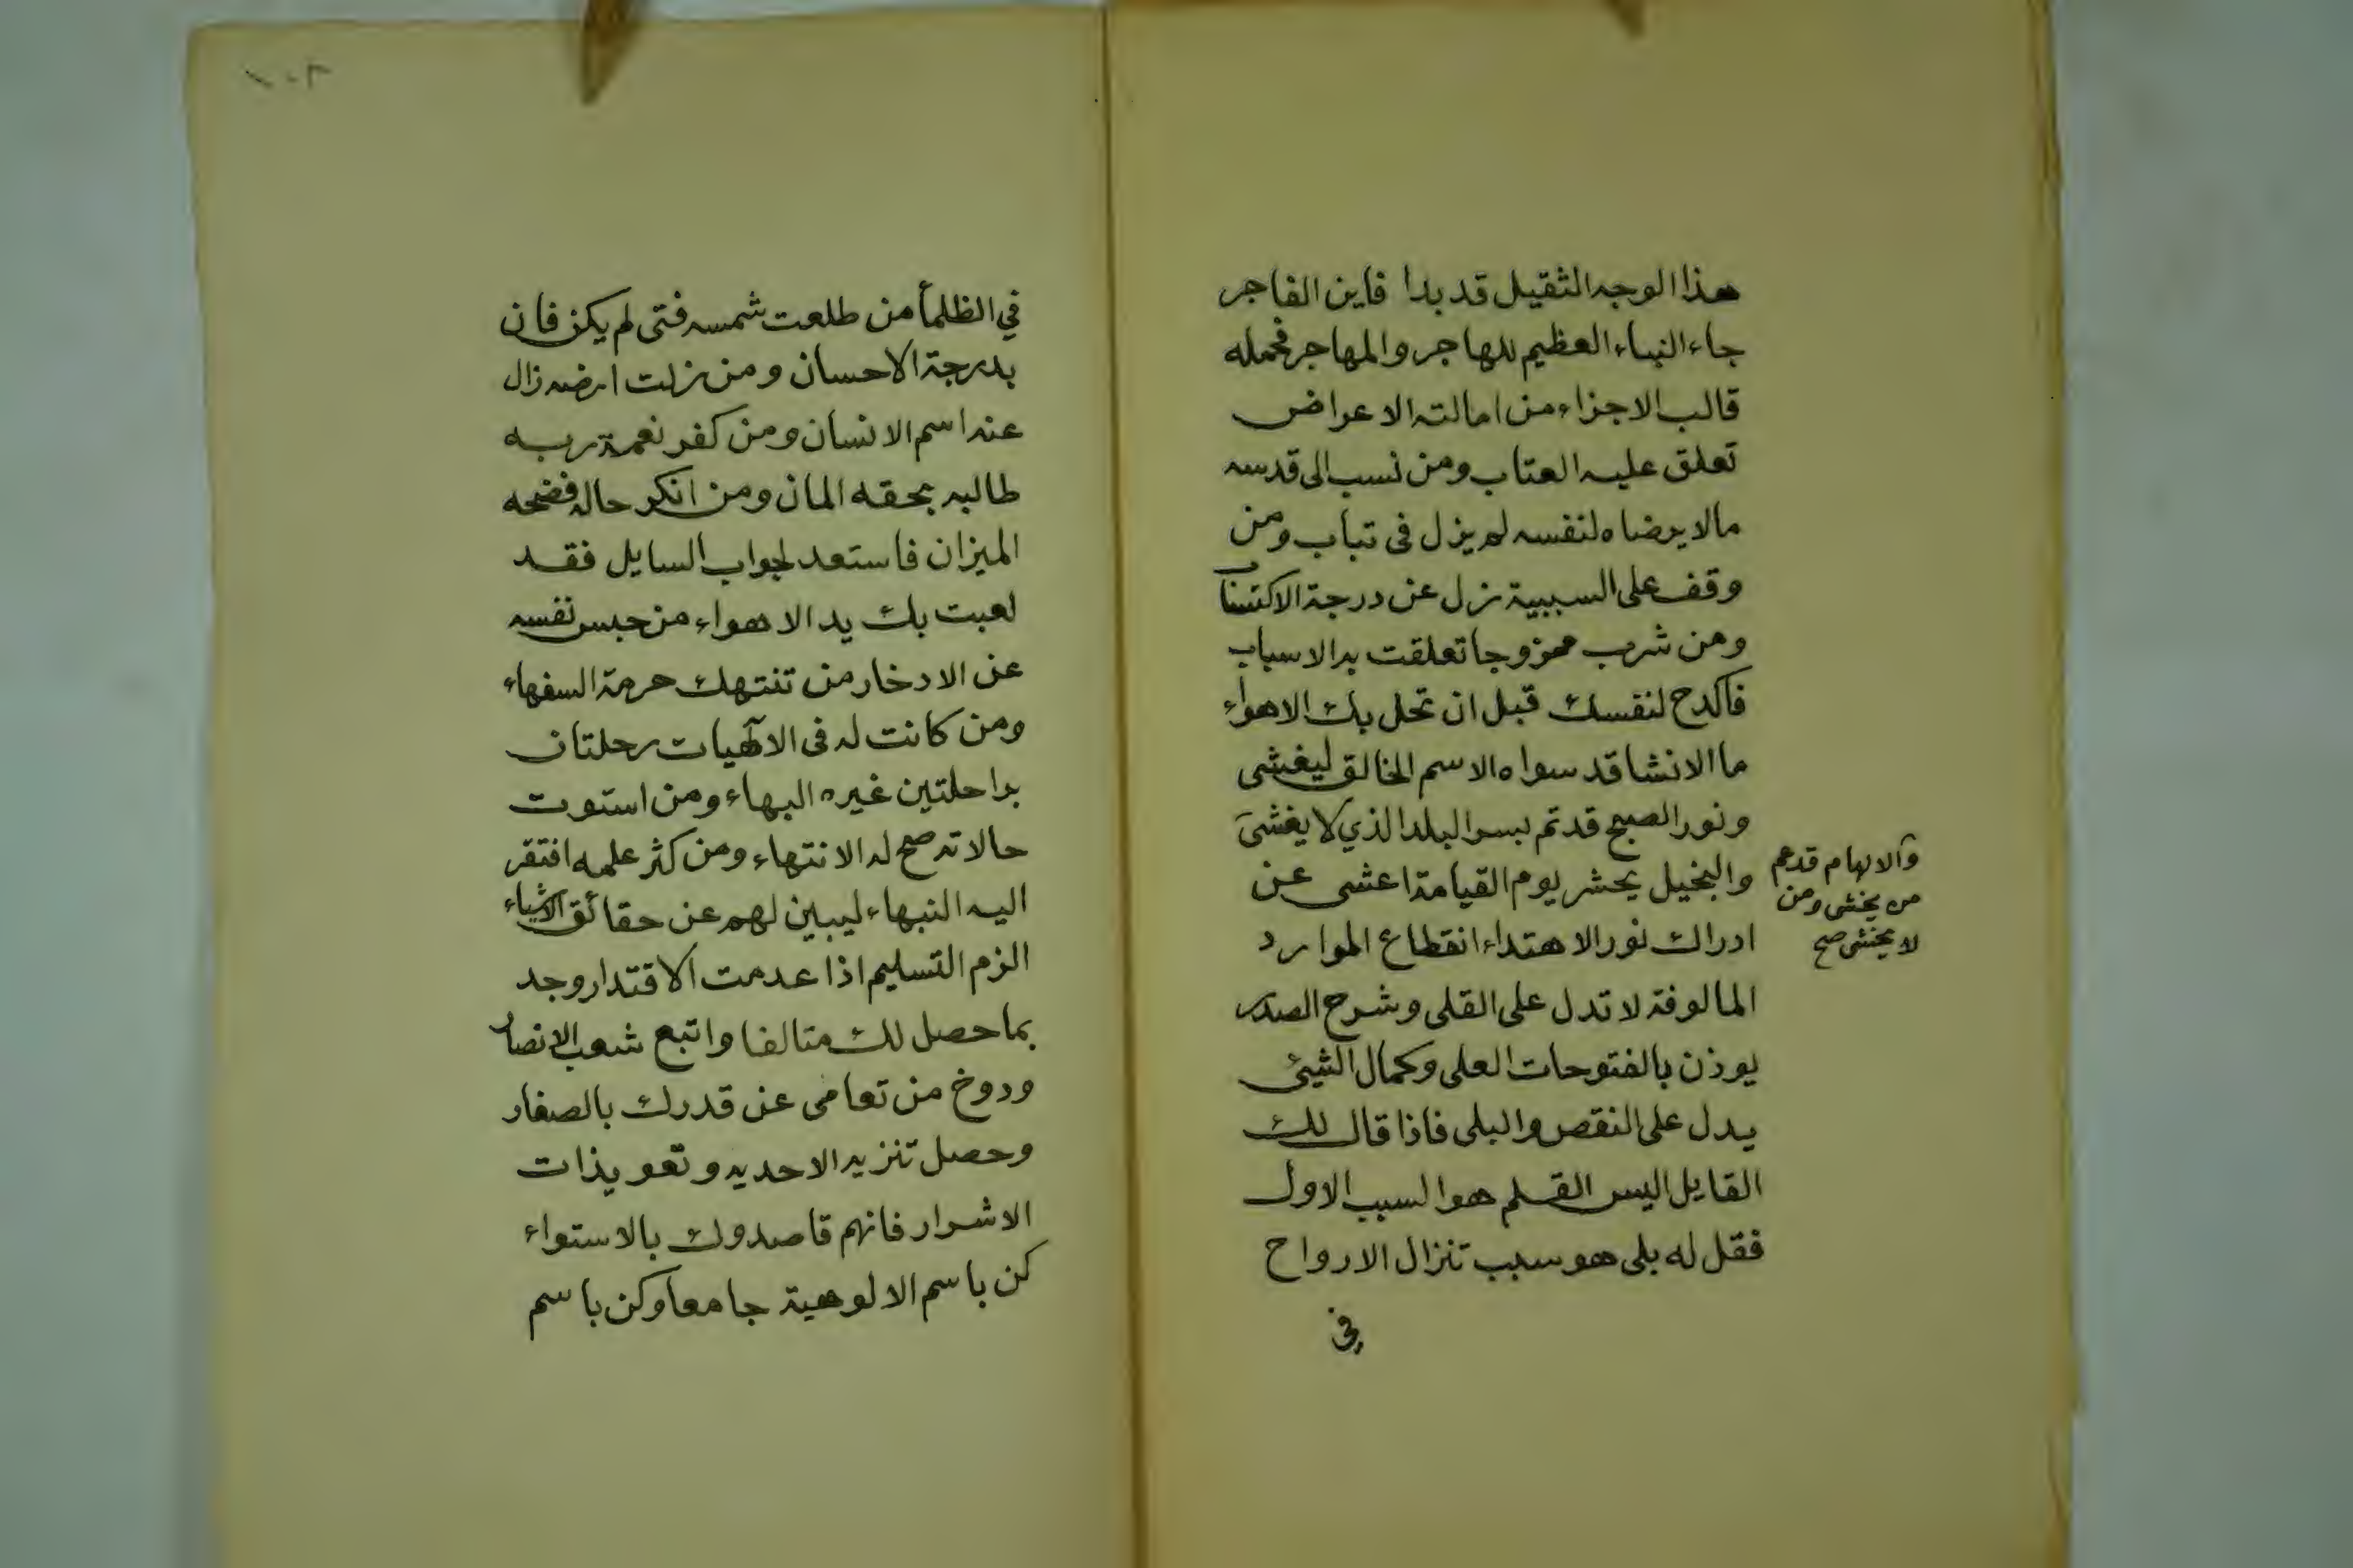 هذا الوجه الثقيل قد بدا فاين الفاجر
جاء النباء العظيم للهاجر والمهاجر فحمله
قالب الاجزاء من امالته الاعراض
تعلق عليه العتاب ومن نسب الى قدسه
مالا يرضاه لنفسه لم يزل فى تباب ومن
وقف على السببية نزل عن درجة الاكتساب
ومن شرب ممزوجا تعلقت به الاسباب
فاكدح لنفسك قبل ان تحل بك الاهواء
ما الانشا قد سواه الاسم الخالق ليغشى
ونور الصبح قد تم بسر البلد الذي لا يغشى
والالهام قدعم
من يخشى ومن
لا يخشى صح
والبخيل يحشر يوم القيامة اعشى عن
ادراك نور الاهتداء انقطاع الموارد
المالوفة لا تدل على القلى وشرح الصدر
يوذن بالفتوحات العلى وكمال الشيئ
يدل على النقص والبلى فاذا قال لك
القايل اليس القلم هو السبب الاول
فقل له بلى هو سبب تنزال الارواح
فى
١٠٢
في الظلمأ من طلعت شمسه فتى لم يكن فان
بدرجة الاحسان ومن نزلت ارضه زال
عنه اسم الانسان ومن كفر نعمة ربه
طالبه بحقه المان ومن انكر حاله فضحه
الميزان فاستعد لجواب السايل فقد
لعبت بك يد الاهواء من حبس نفسه
عن الادخار من تنتهك حرمة السفهاء
ومن كانت له فى الالهيات رحلتان
براحلتين غيره البهاء ومن استوت
حالاته صح له الانتهاء ومن كثر علمه افتقر
اليه النبهاء ليبين لهم عن حقائق الاشياء
الزم التسليم اذا عدمت الاقتدار وجد
بما حصل لك متالفا واتبع شعب الانصار
ودوخ من تعامى عن قدرك بالصغار
وحصل تنزيه الاحديه وتعويذات
الاشرار فانهم قاصدوك بالاستواء
كن باسم الالوهية جامعا وكن باسم